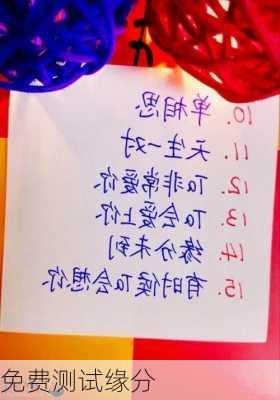 10. 单相思
11. 天生一对
12. Ta非常爱你
13. Ta会爱上你
14. 缘分未到
15. 有时候Ta会想你
免费测试缘分